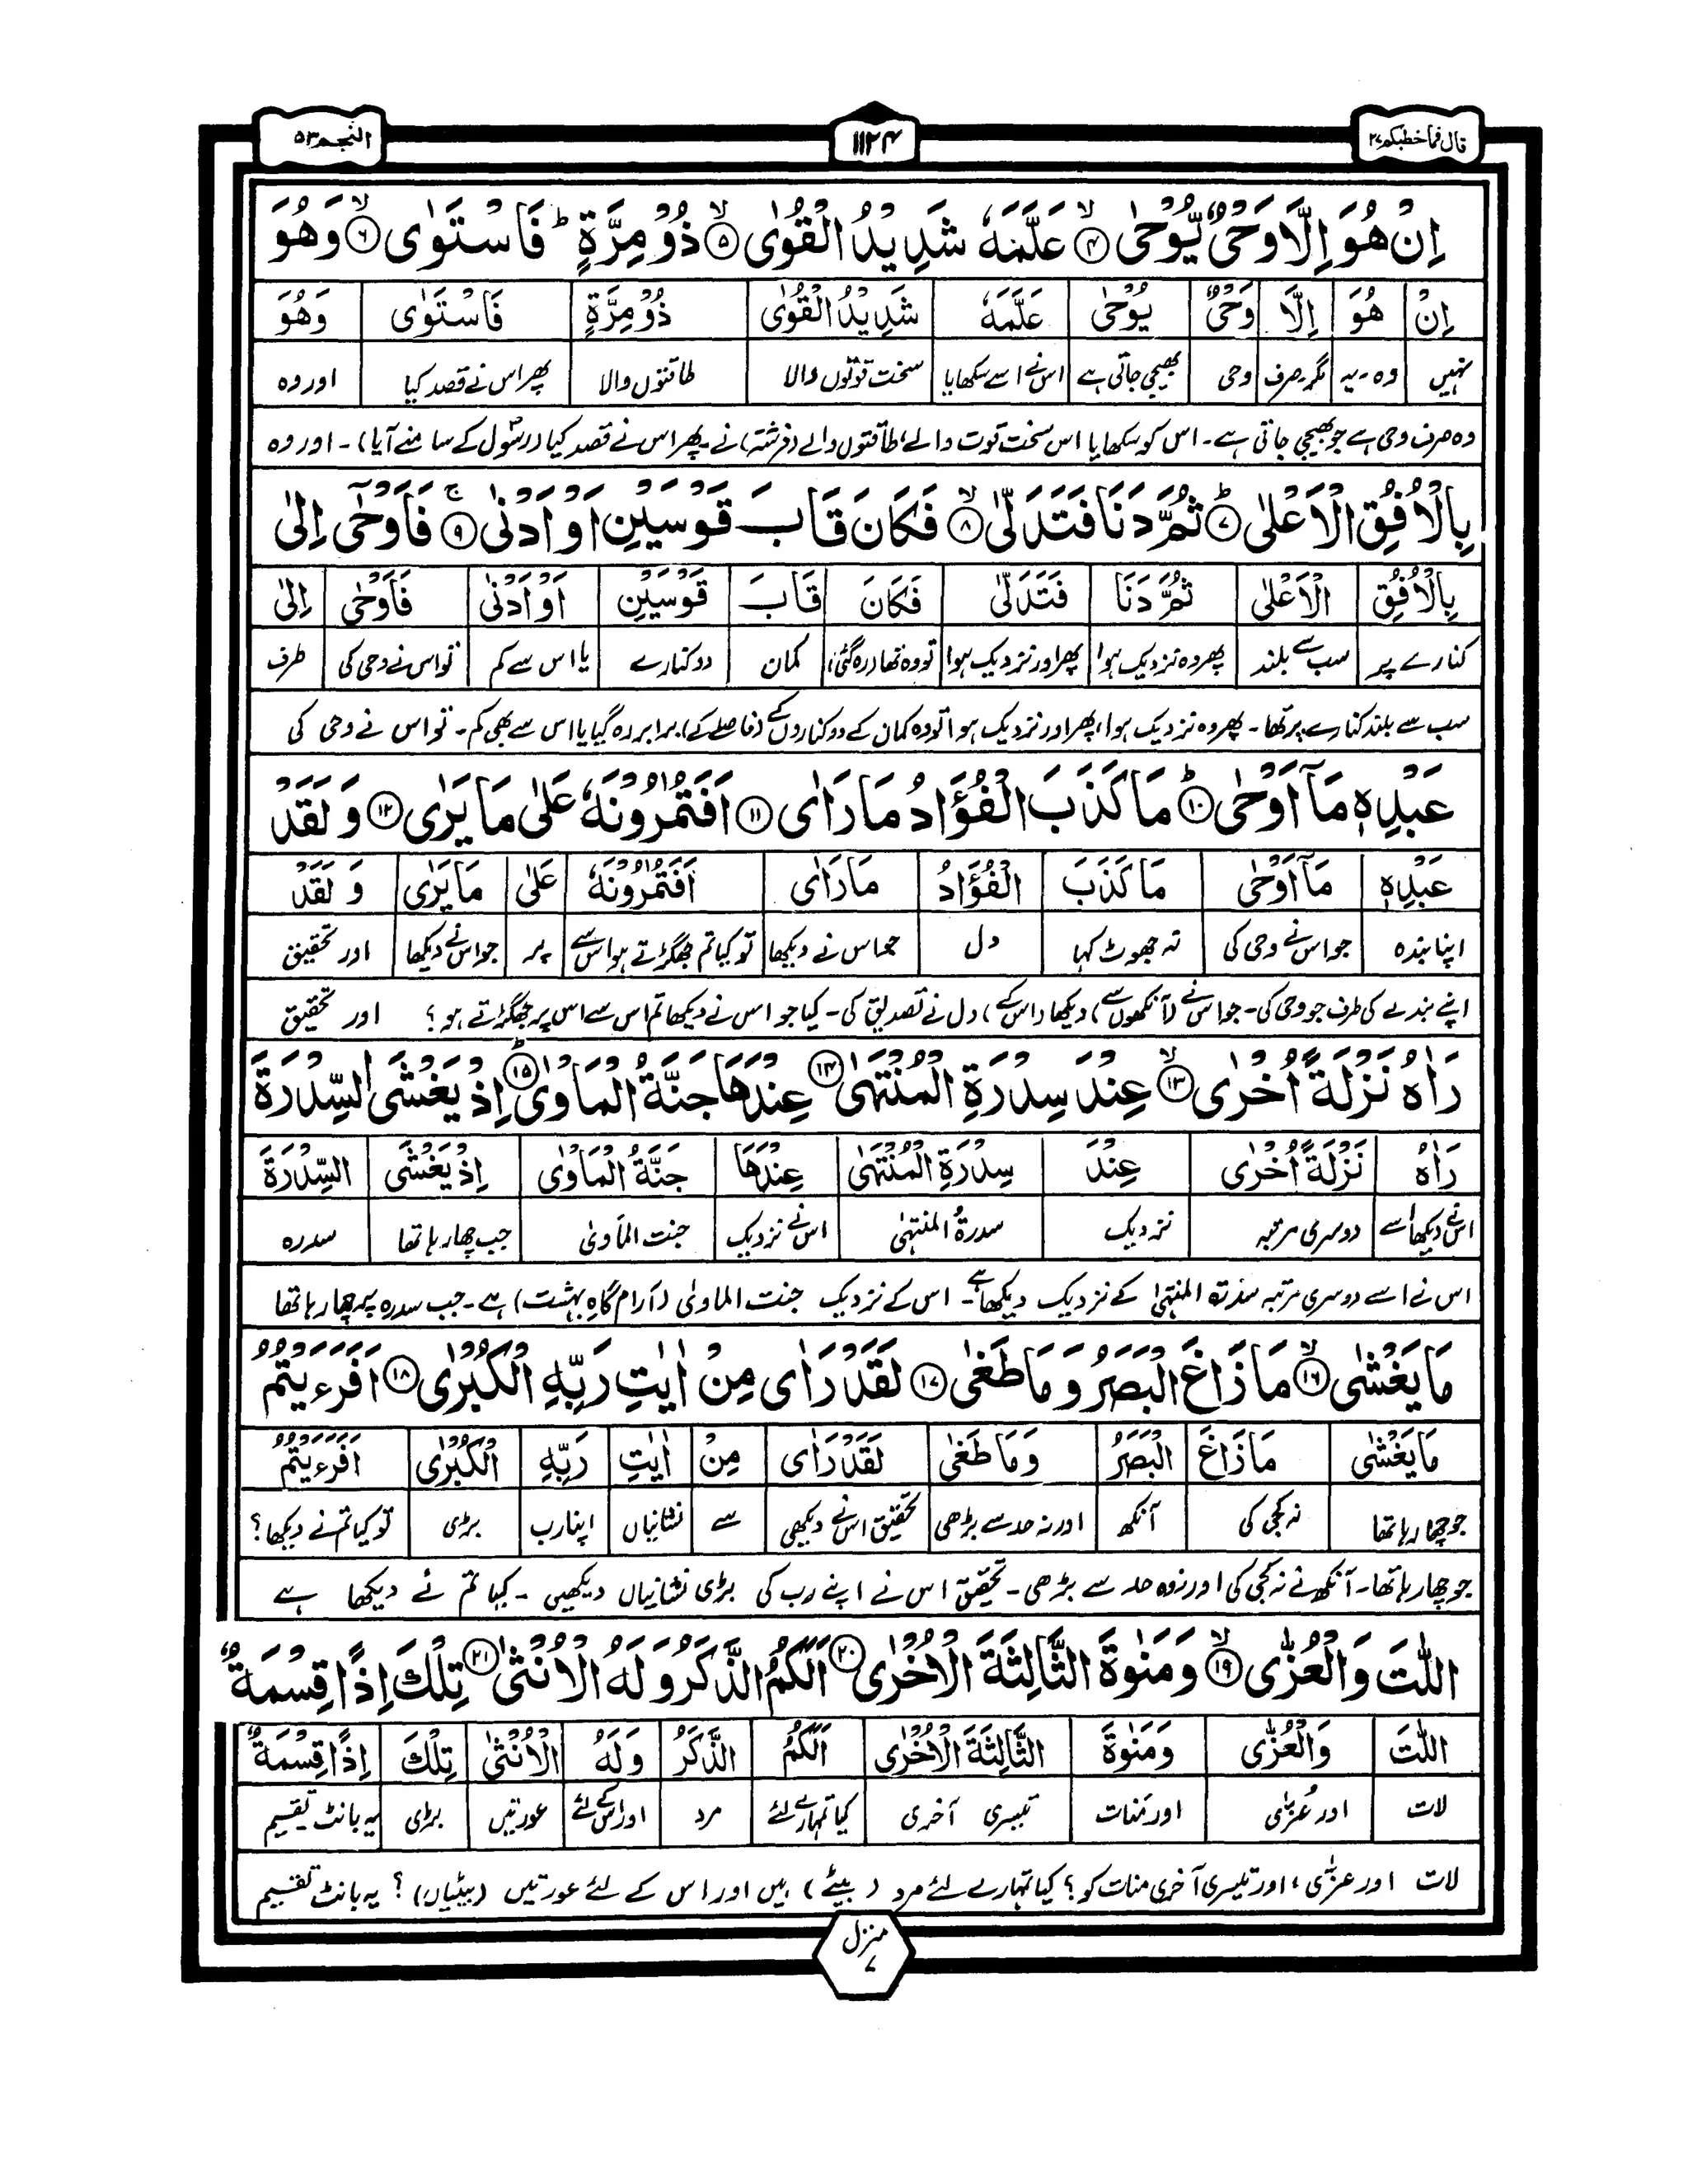 قال فما خطبکم ۲۷
۱۱۲۴
النجم ۵۳
اِنْ هُوَ اِلَّا وَحْیٌ یُّوْحٰی ۴ عَلَّمَهٗ شَدِیْدُ الْقُوٰی ۵ ذُوْ مِرَّةٍ ؕ فَاسْتَوٰی ۶ وَهُوَ
اِنْ هُوَ اِلَّا وَحْیٌ یُوْحٰی عَلَّمَهٗ شَدِیْدُ الْقُوٰی ذُوْ مِرَّةٍ فَاسْتَوٰی وَهُوَ
نہیں وہ۔یہ مگر۔صرف وحی بھیجی جاتی ہے اس نے اسے سکھایا سخت قوتوں والا طاقتوں والا پھر اس نے قصد کیا اور وہ
وہ صرف وحی ہے جو بھیجی جاتی ہے۔ اس کو سکھایا اس سخت قوت والے، طاقتوں والے (فرشتہ) نے۔ پھر اس نے قصد کیا (رسولؐ کے سامنے آیا)۔ اور وہ
بِالْاُفُقِ الْاَعْلٰی ۷ ثُمَّ دَنَا فَتَدَلّٰی ۸ فَکَانَ قَابَ قَوْسَیْنِ اَوْ اَدْنٰی ۹ فَاَوْحٰۤی اِلٰی
بِالْاُفُقِ الْاَعْلٰی ثُمَّ دَنَا فَتَدَلّٰی فَکَانَ قَابَ قَوْسَیْنِ اَوْ اَدْنٰی فَاَوْحٰی اِلٰی
کنارے پر سب سے بلند پھر وہ نزدیک ہوا پھر اور نزدیک ہوا تو وہ تھا (رہ گئی) کمان دو کنارے یا اس سے کم تو اس نے وحی کی طرف
سب سے بلند کنارے پر تھا۔ پھر وہ نزدیک ہوا، پھر اور نزدیک ہوا تو وہ کمان کے دو کناروں کے (فاصلے کے) برابر رہ گیا یا اس سے بھی کم۔ تو اس نے وحی کی
عَبْدِهٖ مَاۤ اَوْحٰی ۱۰ مَا کَذَبَ الْفُؤَادُ مَا رَاٰی ۱۱ اَفَتُمٰرُوْنَهٗ عَلٰی مَا یَرٰی ۱۲ وَ لَقَدْ
عَبْدِهٖ مَاۤ اَوْحٰی مَا کَذَبَ الْفُؤَادُ مَا رَاٰی اَفَتُمٰرُوْنَهٗ عَلٰی مَا یَرٰی وَ لَقَدْ
اپنا بندہ جو اس نے وحی کی نہ جھوٹ کہا دل جو اس نے دیکھا تو کیا تم جھگڑتے ہو اس سے پر جو اس نے دیکھا اور تحقیق
اپنے بندے کی طرف جو وحی کی۔ جو اس نے (آنکھوں سے) دیکھا (اس کے) دل نے تصدیق کی۔ کیا جو اس نے دیکھا تم اس سے اس پر جھگڑتے ہو؟ اور تحقیق
رَاٰهُ نَزْلَةً اُخْرٰی ۱۳ عِنْدَ سِدْرَةِ الْمُنْتَهٰی ۱۴ عِنْدَهَا جَنَّةُ الْمَاْوٰی ۱۵ اِذْ یَغْشَی السِّدْرَةَ
رَاٰهُ نَزْلَةً اُخْرٰی عِنْدَ سِدْرَةِ الْمُنْتَهٰی عِنْدَهَا جَنَّةُ الْمَاْوٰی اِذْ یَغْشَی السِّدْرَةَ
اس نے دیکھا اسے دوسری مرتبہ نزدیک سدرۃ المنتہیٰ اس نے نزدیک جنت الماَویٰ جب چھا رہا تھا سدرہ
اس نے اسے دوسری مرتبہ سدرۃ المنتہیٰ کے نزدیک دیکھا ہے۔ اس کے نزدیک جنت الماویٰ (آرام گاہِ بہشت) ہے۔ جب سدرہ پر چھا رہا تھا
مَا یَغْشٰی ۱۶ مَا زَاغَ الْبَصَرُ وَ مَا طَغٰی ۱۷ لَقَدْ رَاٰی مِنْ اٰیٰتِ رَبِّهِ الْکُبْرٰی ۱۸ اَفَرَءَیْتُمُ
مَا یَغْشٰی مَا زَاغَ الْبَصَرُ وَ مَا طَغٰی لَقَدْ رَاٰی مِنْ اٰیٰتِ رَبِّهِ الْکُبْرٰی اَفَرَءَیْتُمُ
جو چھا رہا تھا نہ کجی کی آنکھ اور نہ حد سے بڑھی تحقیق اس نے دیکھی سے نشانیاں اپنا رب بڑی تو کیا تم نے دیکھا؟
جو چھا رہا تھا۔ آنکھ نے نہ کجی کی اور نہ وہ حد سے بڑھی۔ تحقیق اس نے اپنے رب کی بڑی نشانیاں دیکھیں۔ کیا تم نے دیکھا ہے
اللّٰتَ وَ الْعُزّٰی ۱۹ وَ مَنٰوةَ الثَّالِثَةَ الْاُخْرٰی ۲۰ اَلَکُمُ الذَّکَرُ وَ لَهُ الْاُنْثٰی ۲۱ تِلْکَ اِذًا قِسْمَةٌ
اللّٰتَ وَالْعُزّٰی وَ مَنٰوةَ الثَّالِثَةَ الْاُخْرٰی اَلَکُمُ الذَّکَرُ وَ لَهُ الْاُنْثٰی تِلْکَ اِذًا قِسْمَةٌ
لات اور عُزّٰی اور مَنات تیسری آخری کیا تمہارے لئے مرد اور اس کے لئے عورتیں بڑی یہ بانٹ تقسیم
لات اور عزّٰی، اور تیسری آخری منات کو؟ کیا تمہارے لئے مرد (بیٹے) ہیں اور اس کے لئے عورتیں (بیٹیاں)؟ یہ بانٹ تقسیم
منزل
۷